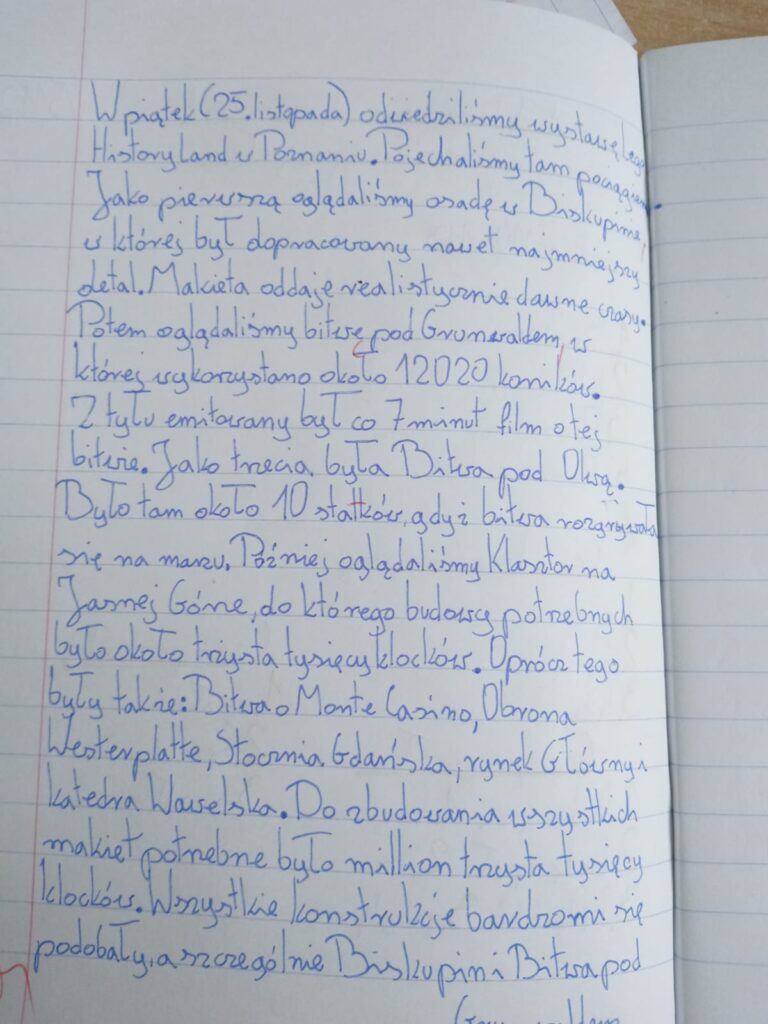 W piątek (25.listopada) odwiedziliśmy wystawę Lego
History Land w Poznaniu. Pojechaliśmy tam pociągiem.
Jako pierwszą oglądaliśmy osadę w Biskupinie,
w której był dopracowany nawet najmniejszy
detal. Makieta oddaje realistycznie dawne czasy.
Potem oglądaliśmy bitwę pod Grunwaldem, w
której wykorzystano około 12020 koników.
Z tyłu emitowany był co 7 minut film o tej
bitwie. Jako trzecia była Bitwa pod Oliwą.
Było tam około 10 statków, gdyż bitwa rozgrywała
się na marzu. Później oglądaliśmy Klasztor na
Jasnej Górze, do którego budowy potrzebnych
było około trzysta tysięcy klocków. Oprócz tego
były także: Bitwa o Monte Casino, Obrona
Westerplatte, Stocznia Gdańska, rynek Główny i
katedra Wawelska. Do zbudowania wszystkich
makiet potrzebne było million trzysta tysięcy
klocków. Wszystkie konstrukcje bardzo mi się
podobały, a szczególnie Biskupin i Bitwa pod